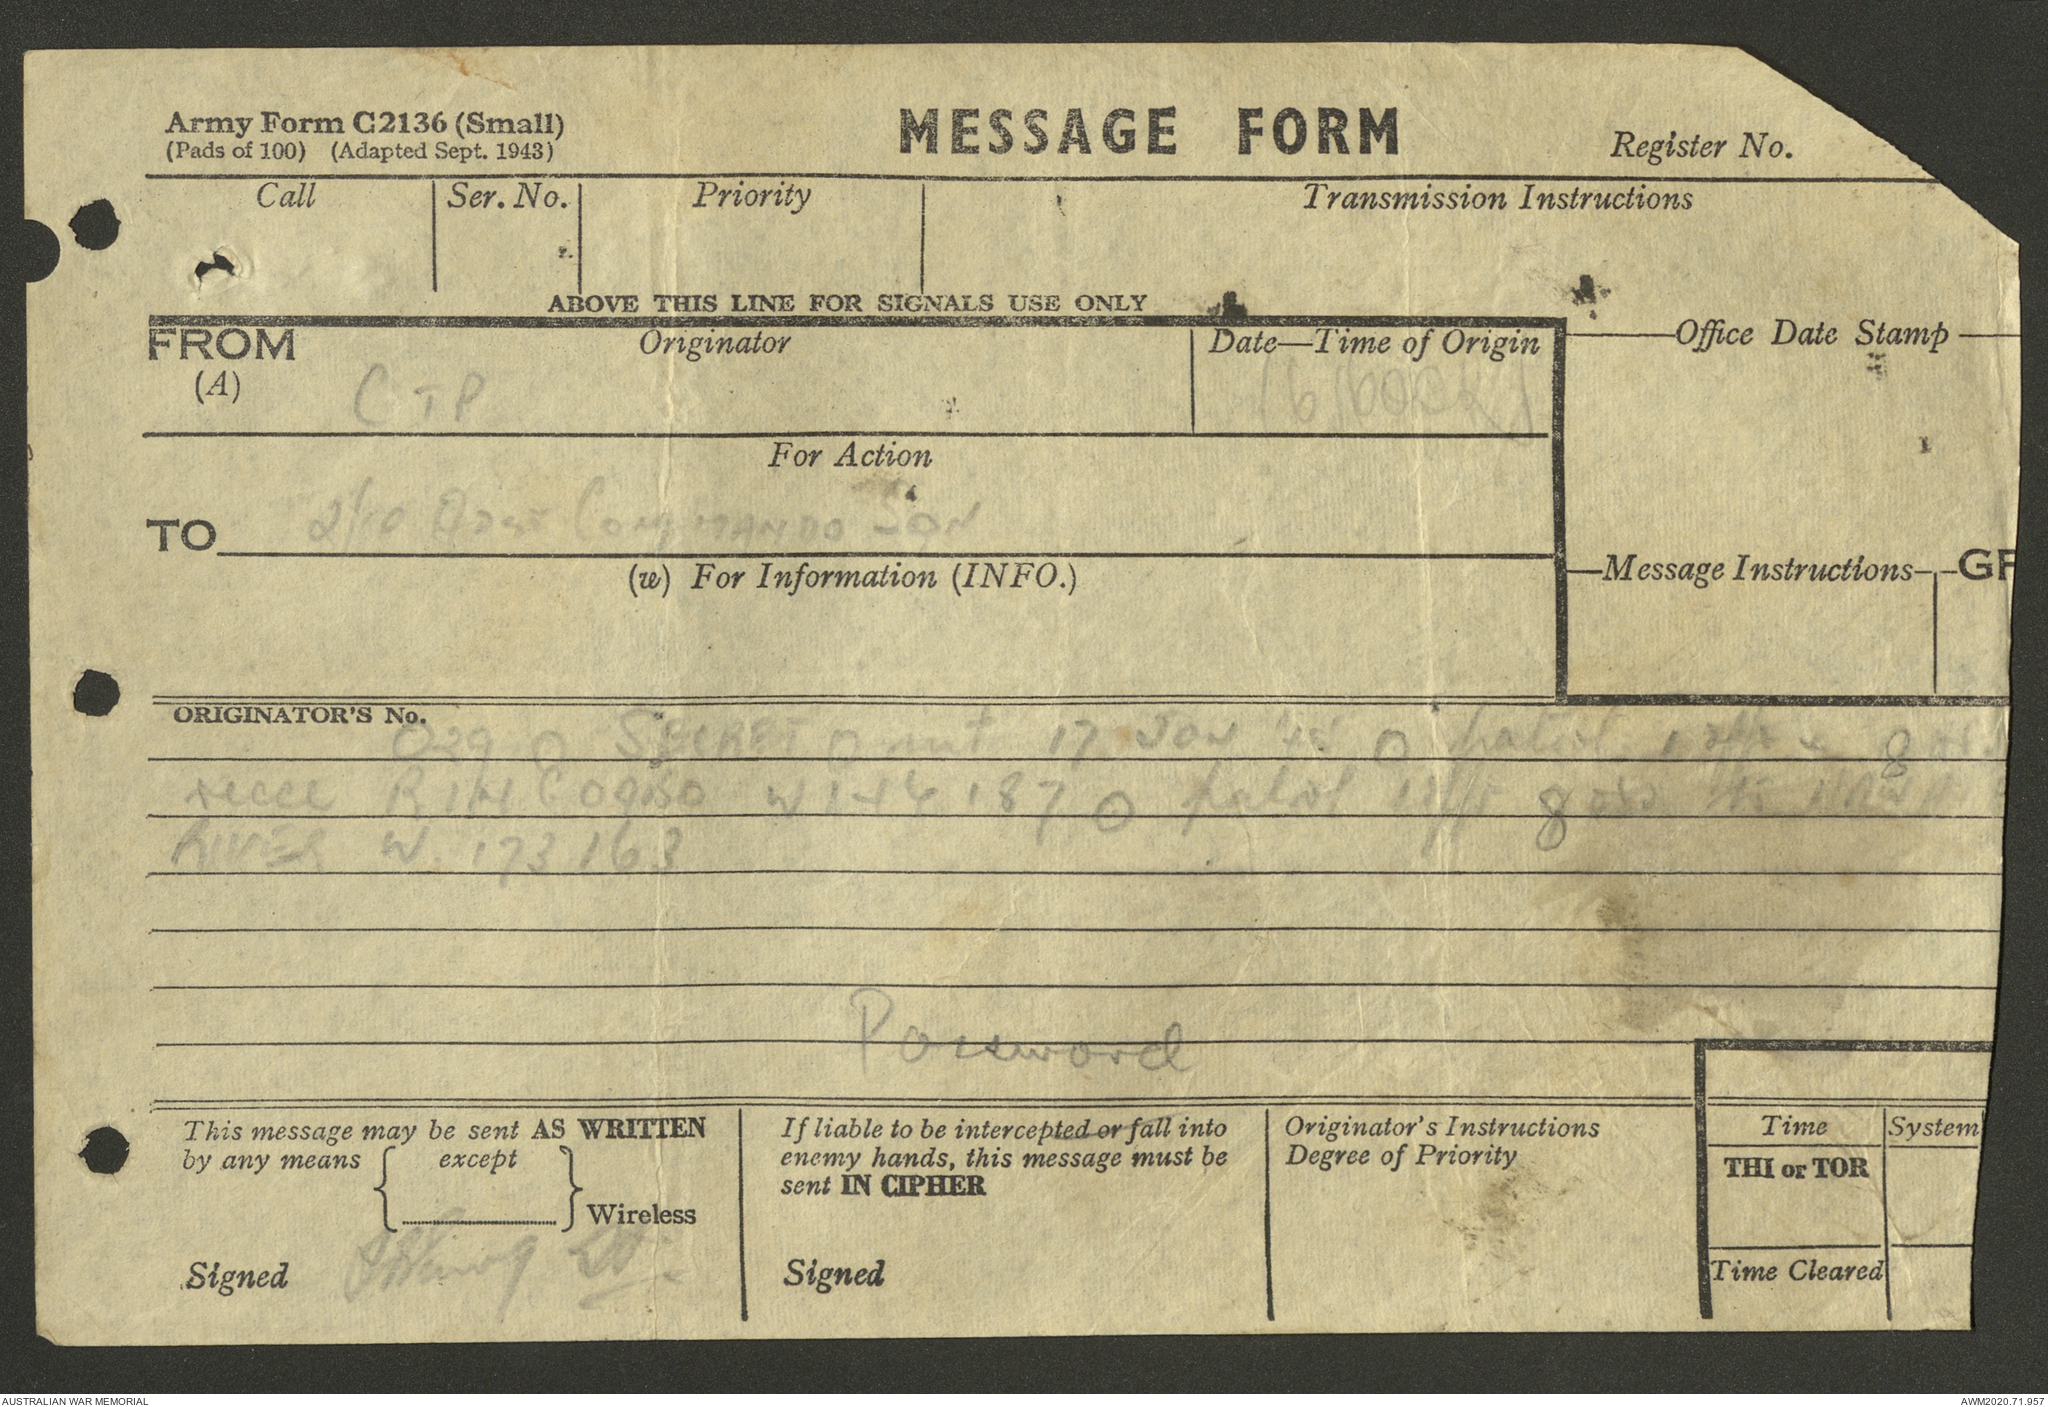 Army Form C2136 (Small)
(Pads of 100) (Adapted Sept. 1943)
MESSAGE FORM
Register No.
Call
Ser. No.
Priority
Transmission Instructions
ABOVE THIS LINE FOR SIGNALS USE ONLY
FROM
(A)
Originator
Date—Time of Origin
Office Date Stamp
C T P
For Action
TO
2/10 Aust Commando Sqn
(w) For Information (INFO.)
Message Instructions
GR
ORIGINATOR'S No.
O29 O SECRET O 17 Jan 45 O patrol 1 8
recce RINCOGBO W 144 187 O patrol 8 ors to
RIVER W. 173 163
Password
This message may be sent AS WRITTEN
by any means except
Wireless
Signed
If liable to be intercepted or fall into
enemy hands, this message must be
sent IN CIPHER
Signed
Originator's Instructions
Degree of Priority
Time
System
THI or TOR
Time Cleared
AUSTRALIAN WAR MEMORIAL
AWM2020.71.957